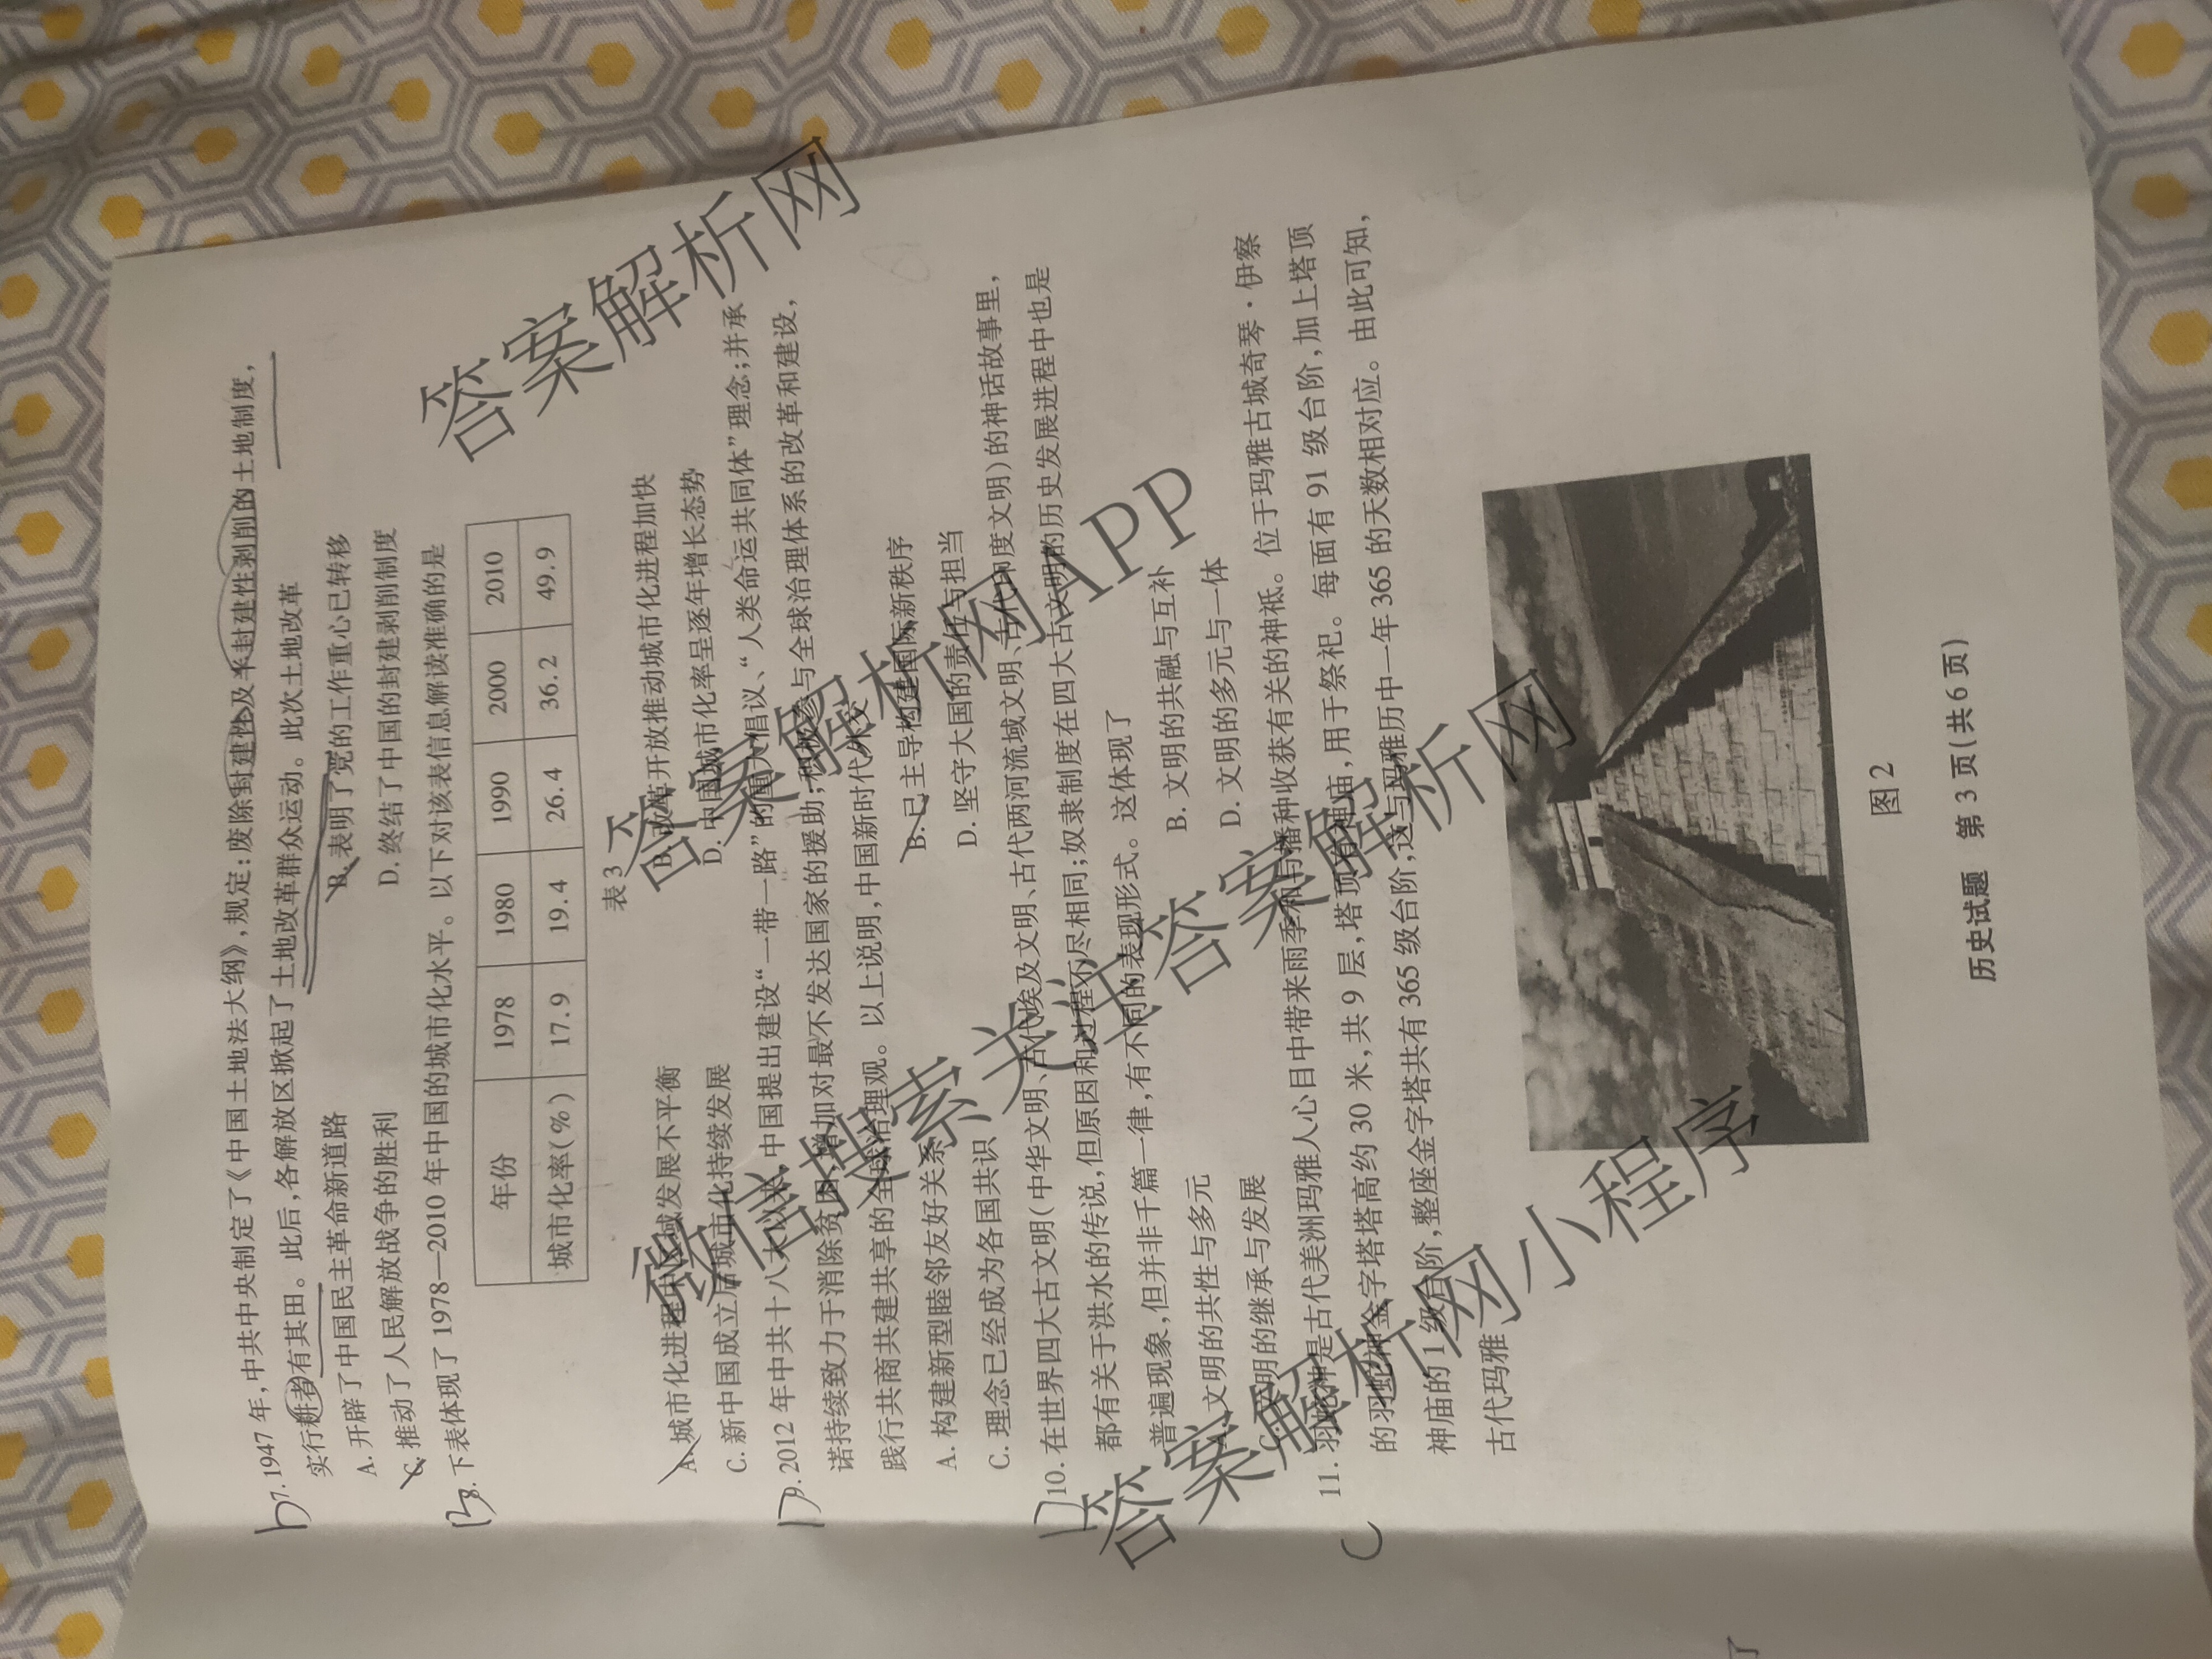 7. 1947 年,中共中央制定了《中国土地法大纲》,规定:废除封建性及半封建性剥削的土地制度,
实行耕者有其田。此后,各解放区掀起了土地改革群众运动。此次土地改革
A. 开辟了中国民主革命新道路 B. 表明了党的工作重心已转移
C. 推动了人民解放战争的胜利 D. 终结了中国的封建剥削制度
8. 下表体现了 1978—2010 年中国的城市化水平。以下对该表信息解读准确的是
年份 1978 1980 1990 2000 2010
城市化率(%) 17.9 19.4 26.4 36.2 49.9
表 3
A. 城市化进程中区域发展不平衡 B. 改革开放推动城市化进程加快
C. 新中国成立后城市化持续发展 D. 中国城市化率呈逐年增长态势
9. 2012 年中共十八大以来,中国提出建设“一带一路”的重大倡议、“人类命运共同体”理念;并承
诺持续致力于消除贫困,增加对最不发达国家的援助;积极参与全球治理体系的改革和建设,
践行共商共建共享的全球治理观。以上说明,中国新时代外交
A. 构建新型睦邻友好关系 B. 已主导构建国际新秩序
C. 理念已经成为各国共识 D. 坚守大国的责任与担当
10. 在世界四大古文明(中华文明、古代埃及文明、古代两河流域文明、古代印度文明)的神话故事里,
都有关于洪水的传说,但原因和过程不尽相同;奴隶制度在四大古文明的历史发展进程中也是
普遍现象,但并非千篇一律,有不同的表现形式。这体现了
A. 文明的共性与多元 B. 文明的共融与互补
C. 文明的继承与发展 D. 文明的多元与一体
11. 羽蛇神是古代美洲玛雅人心目中带来雨季和与播种收获有关的神祇。位于玛雅古城奇琴·伊察
的羽蛇神金字塔塔高约 30 米,共 9 层,塔顶有神庙,用于祭祀。每面有 91 级台阶,加上塔顶
神庙的 1 级台阶,整座金字塔共有 365 级台阶,这与玛雅历中一年 365 的天数相对应。由此可知,
古代玛雅
图 2
历史试题 第 3 页(共 6 页)
答案解析网
答案解析网APP
微信搜索关注答案解析网
答案解析网小程序